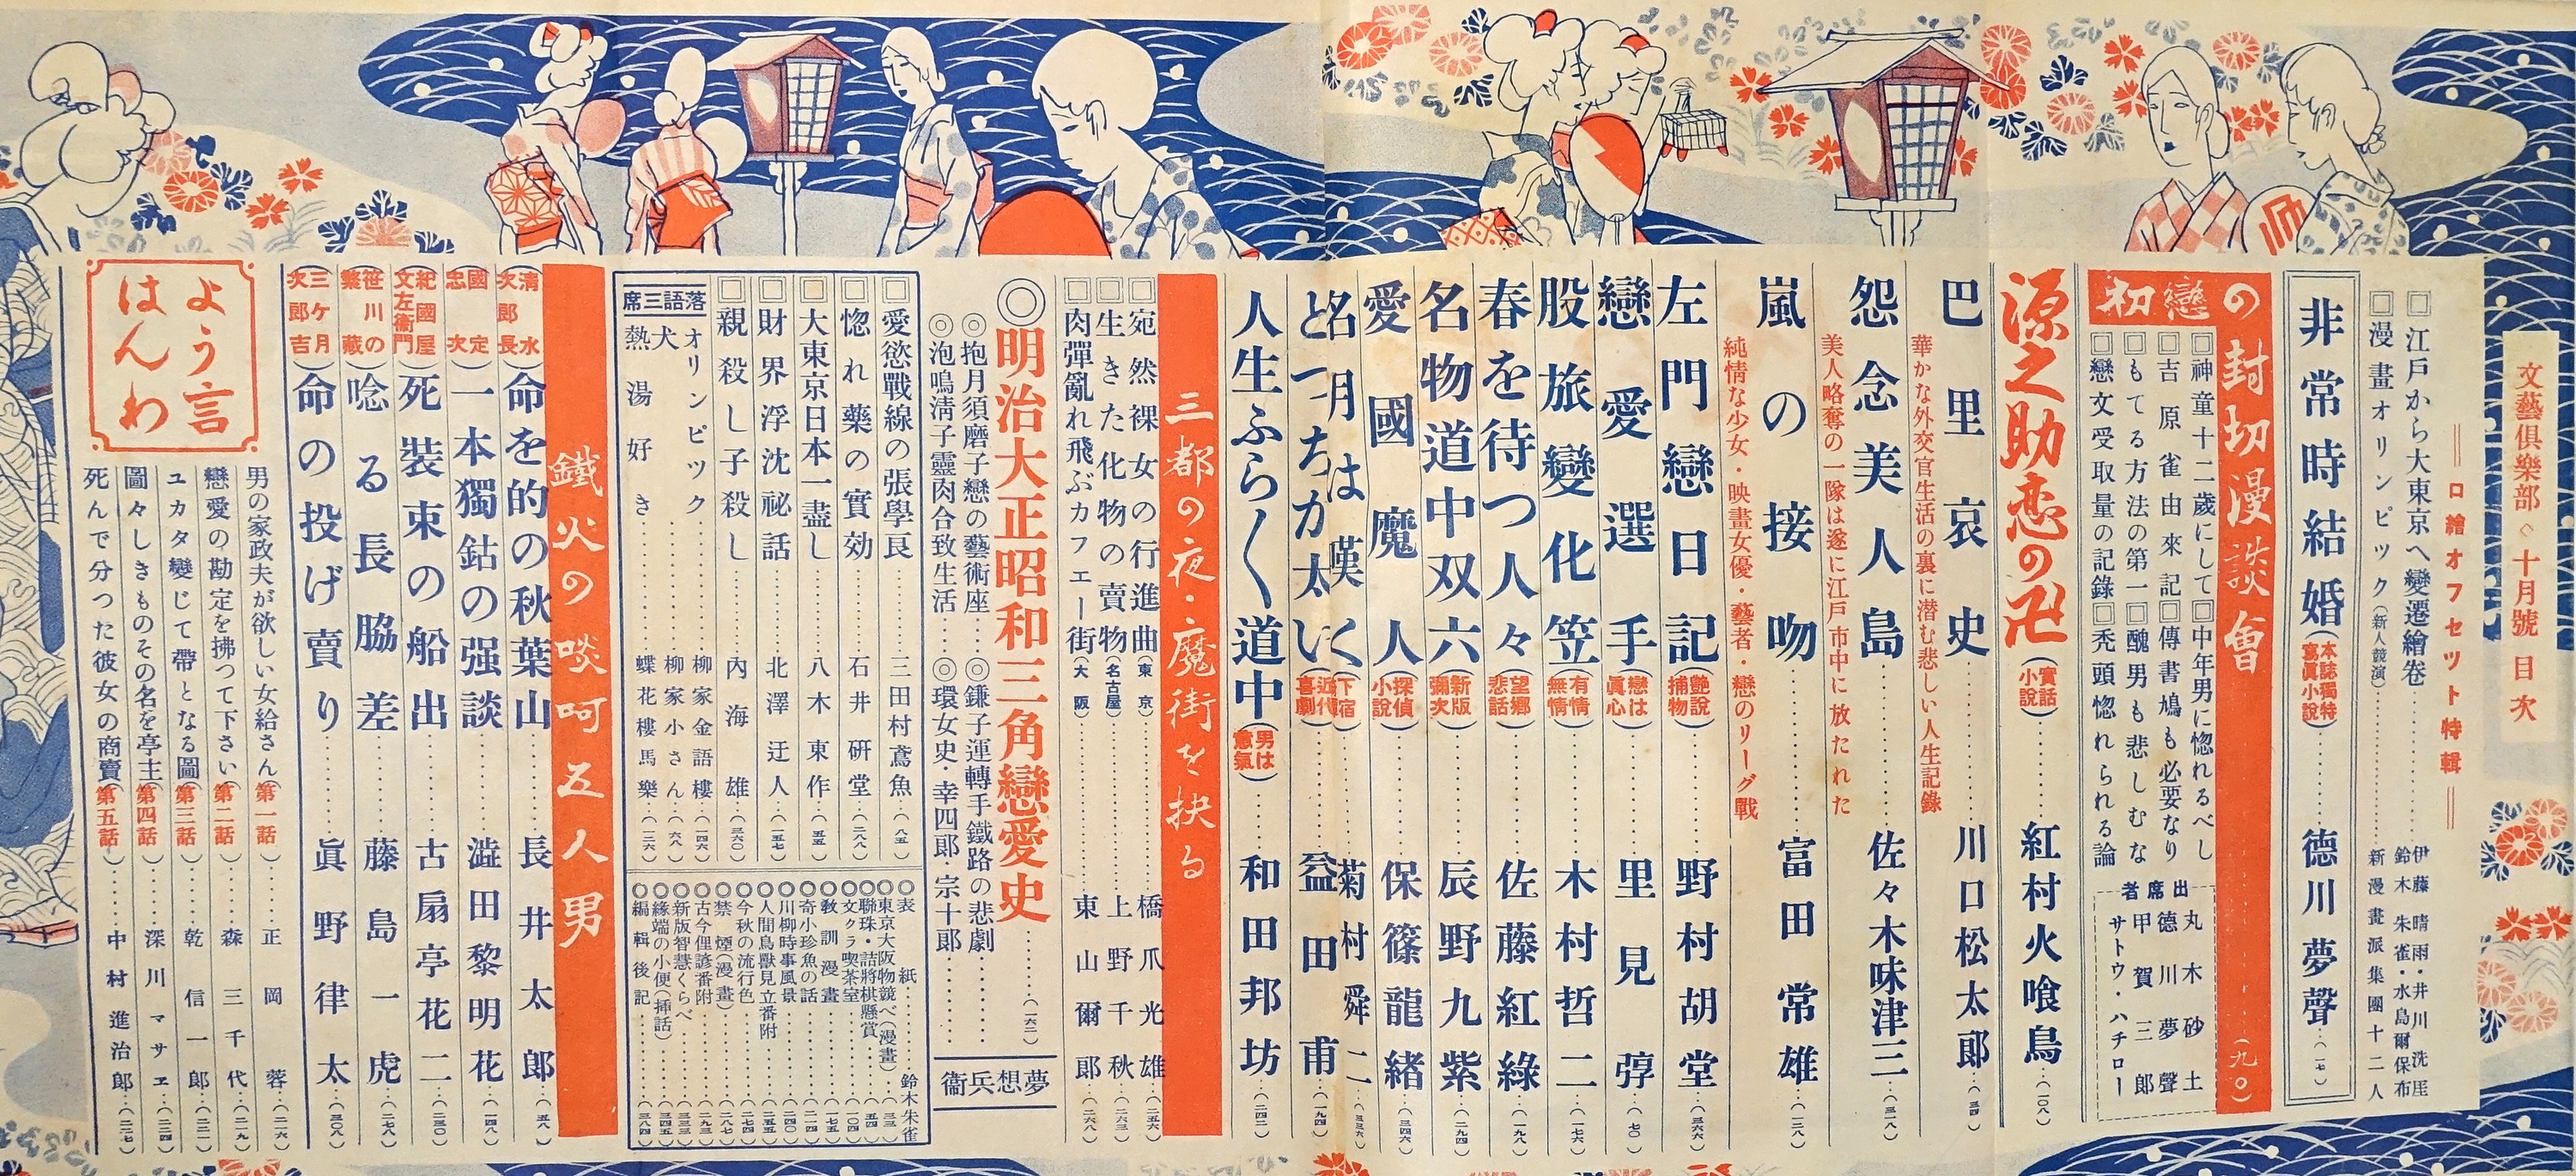 文藝倶樂部◇十月號目次
＝口繪オフセツト特輯＝
□江戸から大東京へ變遷繪卷……伊藤晴雨・井川洗厓 鈴木朱雀・水島爾保布
□漫畫オリンピック(新人競演)……新漫畫派集團十二人
非常時結婚(本誌獨特寫眞小說)……德川夢聲…(一七)
初戀の封切漫談會……(九〇)
□神童十二歳にして
□吉原雀由來記
□もてる方法の第一
□戀文受取量の記錄
□中年男に惚れるべし
□傳書鳩も必要なり
□醜男も悲しむな
□禿頭惚れられる論
出席者
丸木砂土
德川夢聲
甲賀三郎
サトウ・ハチロー
源之助恋の卍(實話小說)……紅村火喰鳥…(一〇八)
巴里哀史……川口松太郎…(三四)
華かな外交官生活の裏に潜む悲しい人生記錄
怨念美人島……佐々木味津三…(三一八)
美人略奪の一隊は遂に江戸市中に放たれた
嵐の接吻……富田常雄…(一二八)
純情な少女・映畫女優・藝者・戀のリーグ戰
左門戀日記(艶說捕物)……野村胡堂…(三六六)
戀愛選手(戀は眞心)……里見弴…(七〇)
股旅變化笠(有情無情)……木村哲二…(一七六)
春を待つ人々(望鄕悲話)……佐藤紅綠…(一九八)
名物道中双六(新版彌次)……辰野九紫…(二九四)
愛國魔人(探偵小說)……保篠龍緒…(三四六)
名月は嘆く(下宿近代)……菊村舜二…(三三六)
と一ちか太い(喜劇)……益田甫…(一九四)
人生ふらく道中(男は意氣)……和田邦坊…(二四二)
三都の夜・魔街を抉る
□宛然裸女の行進曲(東京)……橋爪光雄…(二五六)
□生きた化物の賣物(名古屋)……上野千秋…(二六三)
□肉彈亂れ飛ぶカフエー街(大阪)……東山爾郎…(二六八)
◎明治大正昭和三角戀愛史……(一六二)
◎抱月須磨子戀の藝術座……◎鎌子運轉手鐵路の悲劇……
◎泡鳴淸子靈肉合致生活……◎環女史・幸四郎・宗十郎……
夢想兵衞
□愛慾戰線の張學良……三田村鳶魚…(八五)
□惚れ藥の實効……石井硏堂…(二八八)
□大東京日本一盡し……八木東作…(五五)
□財界浮沈祕話……北澤迂人…(一五七)
□親殺し子殺し……內海雄…(三六〇)
落語三席
オリンピック……柳家金語樓…(一四六)
犬……柳家小さん…(六八)
熱湯好き……蝶花樓馬樂…(一二六)
◎表紙……鈴木朱雀
◎東京大阪物競べ(漫畫)……(三三)
◎聯珠・詰將棋懸賞……(五四)
◎文クラ喫茶室……(一〇四)
◎敎訓漫畫……(一七五)
◎奇小珍魚の話……(二一四)
◎川柳時事風景……(二四〇)
◎人間鳥獸見立番附……(二五五)
◎今秋の流行色……(二七四)
◎禁煙(漫畫)……(二八七)
◎古今俚諺番附……(二九三)
◎新版智慧くらべ……(三三三)
◎緣端の小便(挿話)……(三四五)
◎編輯後記……(三八四)
鐵火の啖呵五人男
(淸水次郎長)命を的の秋葉山……長井太郎…(五八)
(國定忠次)一本獨鈷の强談……澁田黎明花…(一四八)
(紀國屋文左衞門)死裝束の船出……古扇亭花二…(二三〇)
(笹川の繁藏)唸る長脇差……藤島一虎…(二七八)
(三ケ月次郎吉)命の投げ賣り……眞野律太…(三〇八)
よう言はんわ
男の家政夫が欲しい女給さん(第一話)……正岡蓉…(二一六)
戀愛の勘定を拂つて下さい(第二話)……森三千代…(二一九)
ユカタ變じて帶となる圖(第三話)……乾信一郎…(二二一)
圖々しきものその名を亭主(第四話)……深川マサヱ…(二二四)
死んで分つた彼女の商賣(第五話)……中村進治郎…(二二七)